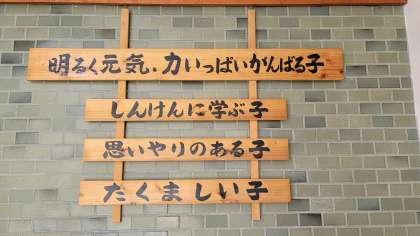 明るく元気・力いっぱいがんばる子
しんけんに学ぶ子
思いやりのある子
たくましい子